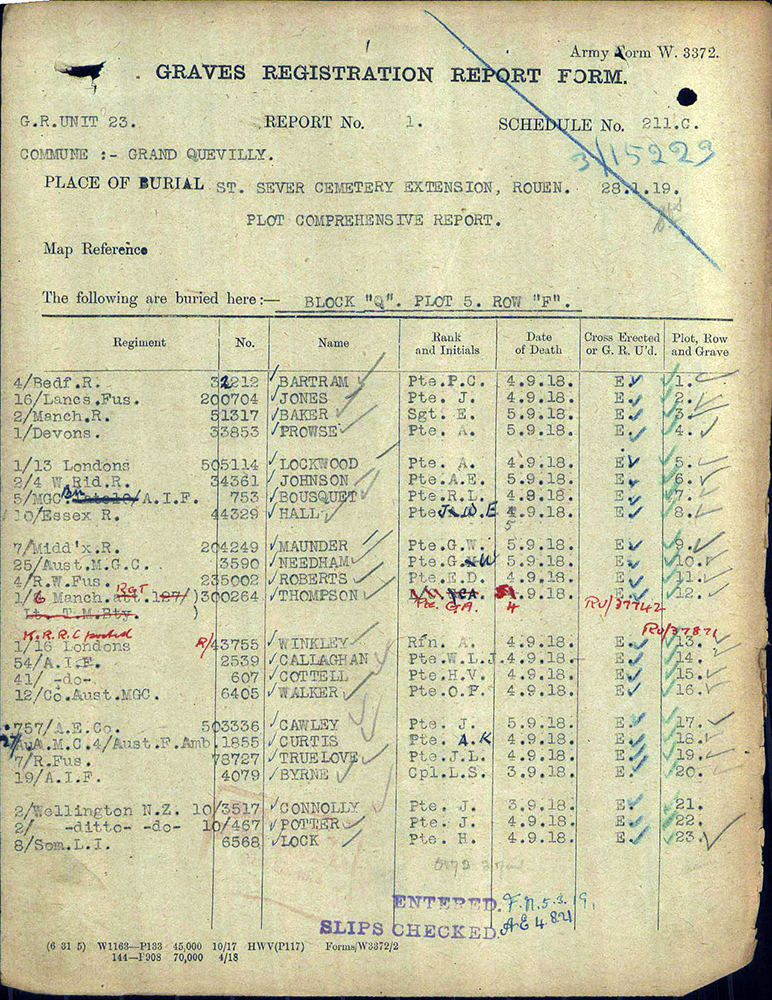 Army Form W. 3372.
GRAVES REGISTRATION REPORT FORM.
G.R.UNIT 23. REPORT No. 1. SCHEDULE No. 211.C.
3/15223
COMMUNE :- GRAND QUEVILLY.
PLACE OF BURIAL ST. SEVER CEMETERY EXTENSION, ROUEN. 28.1.19.
PLOT COMPREHENSIVE REPORT.
Map Reference
The following are buried here:— BLOCK "Q". PLOT 5. ROW "F".
Regiment No. Name Rank and Initials Date of Death Cross Erected or G. R. U'd. Plot, Row and Grave
4/Bedf.R. 32212 BARTRAM Pte.P.C. 4.9.18. E. 1.
16/Lancs.Fus. 200704 JONES Pte. J. 4.9.18. E. 2.
2/Manch.R. 51317 BAKER Sgt. E. 5.9.18. E. 3.
1/Devons. 33853 PROWSE Pte. A. 5.9.18. E. 4.
1/13 Londons 505114 LOCKWOOD Pte. A. 4.9.18. E. 5.
2/4 W.Rid.R. 34361 JOHNSON Pte.A.E. 5.9.18. E. 6.
5/MGC Bn /A.I.F. 753 BOUSQUET Pte.R.L. 4.9.18. E. 7.
10/Essex R. 44329 HALL Pte J.W.E .9.18. E. 8.
5
7/Midd'x.R. 204249 MAUNDER Pte.G.W. 5.9.18. E. 9.
25/Aust.M.G.C. 3590 NEEDHAM Pte.G. W 5.9.18. E. 10.
4/R.W.Fus. 235002 ROBERTS Pte.E.D. 4.9.18. E. 11.
1/6 Manch. RGT att.127/) 300264 THOMPSON .9.18. E. 12.
Lt. T.M.Bty. ) Pte. G.A. 4 RU/37742
K.R.R.C posted RU/37871
1/16 Londons R/43755 WINKLEY Rfn. A. 4.9.18. E. 13.
54/A.I.F. 2539 CALLAGHAN Pte.W.L.J. 4.9.18. E. 14.
41/ -do- 607 COTTELL Pte.H.V. 4.9.18. E. 15.
12/Co.Aust.MGC. 6405 WALKER Pte.O.F. 4.9.18. E. 16.
757/A.E.Co. 503336 CAWLEY Pte. J. 5.9.18. E. 17.
AuA.M.C.4/Aust.F.Amb. 1855 CURTIS Pte. A.K 4.9.18. E. 18.
7/R.Fus. 78727 TRUELOVE Pte.J.L. 4.9.18. E. 19.
19/A.I.F. 4079 BYRNE Cpl.L.S. 3.9.18. E. 20.
2/Wellington N.Z. 10/3517 CONNOLLY Pte. J. 3.9.18. E. 21.
2/ -ditto- -do- 10/467 POTTER Pte. J. 4.9.18. E. 22.
8/Som.L.I. 6568 LOCK Pte. H. 4.9.18. E. 23.
ENTERED. F.N.5.3.19.
SLIPS CHECKED. AE 4.8.21
(6 31 5) W1163—P133 45,000 10/17 HWV(P117) Forms/W3372/2
144—P908 70,000 4/18